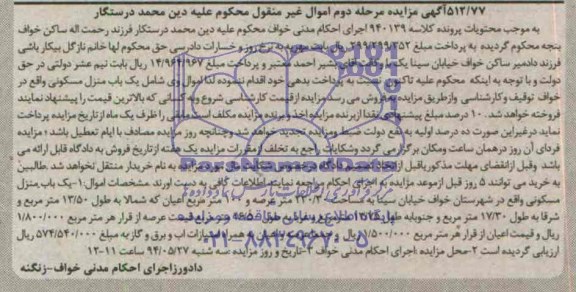 ۵۱۲/۷۷آگهی مزایده مرحله دوم اموال غیر منقول محکوم علیه دین محمد درستگار
به موجب محتویات پرونده کلاسه ۹۴۰۱۳۹ اجرای احکام مدنی خواف محکوم علیه دین محمد درستگار فرزند رحمت اله ساکن خواف
بنجه محکوم گردیده به پرداخت مبلغ ریال بابت مهریه به نرخ روز و خسارات دادرسی حق محکوم لها خانم نازگل بیکار باشی
فرزند دادمیر ساکن خواف خیابان سینا با وکالت آقای بشیر احمد معتبر و پرداخت مبلغ ۱۴/۹۶۴/۹۶۷ ریال بابت نیم عشر دولتی در حق
دولت و با توجه به اینکه محکوم علیه تاکنون نسبت به پرداخت بدهی خود اقدام ننموده لذا اموال وی شامل یک باب منزل مسکونی واقع در
خواف توقیف وکارشناسی وازطریق مزایده بفروش می رسد مزایده ازقیمت کارشناسی شروع وبه کسانی که بالاترین قیمت را پیشنهاد نمایند
فروخته خواهد شد. ۱۰ درصد مبلغ پیشنهادی نقدا ازبرنده مزایده اخذ وبرنده مزایده مکلف است مابقی را ظرف یک ماه از تاریخ مزایده پرداخت
نماید درغیراین صورت ده درصد اولیه به نفع دولت ضبط ومزایده تجدید خواهد شد وچنانچه روز مزایده مصادف با ایام تعطیل باشد ؛ مزایده
فردای آن روز درهمان ساعت ومکان برگزار می گردد وشکایات راجع به تخلف از مقررات مزایده یک هفته ازتاریخ فروش به دادگاه قابل ارائه می
باشد وقبل ازانقضای مهلت مذکوریاقبل ازاتخاذ تصمیم دادگاه درخصوص شکایت مزایده به نام خریدار منتقل نخواهد شد .طالبین
به خرید می توانند ۵ روز قبل ازموعد مزایده به اجرای احکام مراجعه نمایند اطلاعات کافی بدست آورند. مشخصات اموال:۱-یک باب منزل
مسکونی واقع در شهرستان خواف خیابان سینا به مساحت عرصه و متر مربع اعیان که شمالا به طول ۱۳/۵۰ متر مربع و
شرقا به طول ۱۷/۳۰ متر مربع و جنوبا به طول متر مربع و غربا به طول قیمت عرصه از قرار هر متر مربع ۱/۸۰۰/۰۰۰
ریال و قیمت اعیان از قرار هر متر مربع ۱/۵۰۰/۰۰۰ ریال به همراه امتیازات اب و برق و گاز به مبلغ ۵۷۴/۵۴۰/۰۰۰ ریال
ارزیابی گردیده است ۲-محل مزایده :اجرای احکام مدنی خواف ۳-تاریخ و روز مزایده :سه شنبه ۹۴/۰۵/۲۷ ساعت ۱۱-۱۲
دادورزاجرای احکام مدنی خواف-زنگنه
ParsNamadData
۰۲۱-۸۸۳۴۹۶۷۰-۵